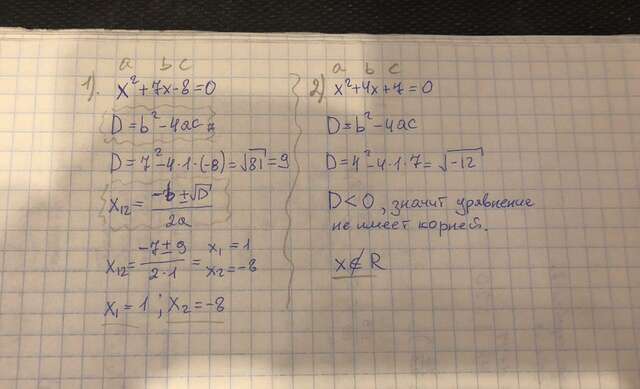 a b c
1). x²+7x-8=0
D=b²-4ac
D=7²-4·1·(-8)=√81=9
x₁₂=(-b±√D)/2a
x₁₂=(-7±9)/(2·1)= x₁=1 x₂=-8
x₁=1; x₂=-8
a b c
2) x²+4x+7=0
D=b²-4ac
D=4²-4·1·7=√-12
D<0, значит уравнение
не имеет корней.
x∉R